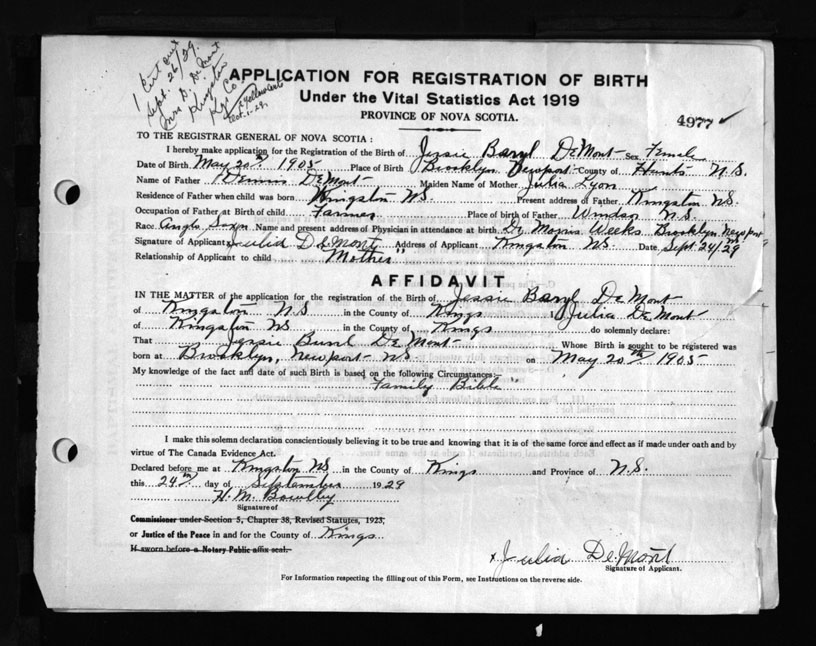 1 Cert out
Sept. 26/29.
Mrs D. D. Mont
Kingston
Kgs Co.
Oct. 1-29.
APPLICATION FOR REGISTRATION OF BIRTH
Under the Vital Statistics Act 1919
PROVINCE OF NOVA SCOTIA.
4977
TO THE REGISTRAR GENERAL OF NOVA SCOTIA:
I hereby make application for the Registration of the Birth of Jessie Baryl DeMont Sex Female
Date of Birth May 20th 1905 Place of Birth Brooklyn Newport County of Hants N.S.
Name of Father Dennis DeMont Maiden Name of Mother Julia Lyon
Residence of Father when child was born Kingston NS. Present address of Father Kingston NS.
Occupation of Father at Birth of child Farmer Place of birth of Father Windsor N.S.
Race Anglo Saxn Name and present address of Physician in attendance at birth Dr Morris Weeks Brooklyn Newport
Signature of Applicant Julia DeMont Address of Applicant Kingston NS. Date Sept. 24/29
Relationship of Applicant to child "Mother"
AFFIDAVIT
IN THE MATTER of the application for the registration of the Birth of Jessie Baryl DeMont
of Kingston NS in the County of Kings Julia DeMont
of Kingston NS in the County of Kings do solemnly declare:
That Jessie Buryl DeMont Whose Birth is sought to be registered was
born at Brooklyn, Newport NS. on May 20th 1905
My knowledge of the fact and date of such Birth is based on the following Circumstances:
"Family Bible"
I make this solemn declaration conscientiously believing it to be true and knowing that it is of the same force and effect as if made under oath and by
virtue of The Canada Evidence Act.
Declared before me at Kingston NS in the County of Kings and Province of N.S.
this 24th day of September 1929
H. M.
Signature of
Commissioner under Section 5, Chapter 38, Revised Statutes, 1923,
or Justice of the Peace in and for the County of Kings
If sworn before a Notary Public affix seal.
x Julia DeMont
Signature of Applicant.
For Information respecting the filling out of this Form, see Instructions on the reverse side.